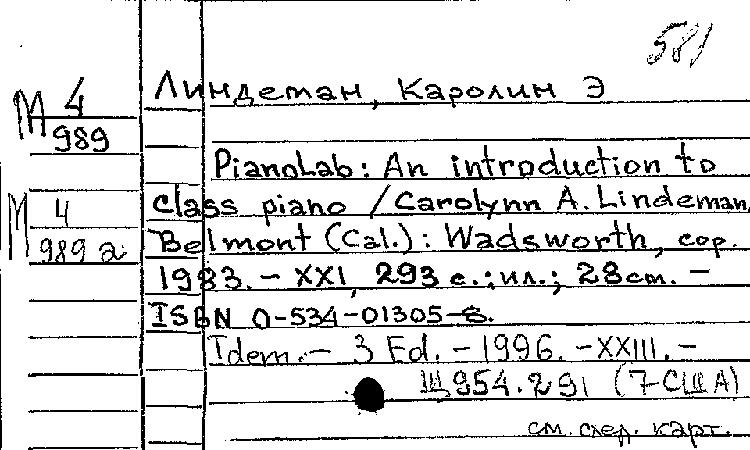 581
Линдеман, Каролин Э
М 4
989
PianoLab: An introduction to
class piano / Carolynn A. Lindeman,
М 4
989 a
Belmont (Cal.): Wadsworth, cop.
1983. – XXI, 293 с.: ил.; 28 cm. –
ISBN 0-534-01305-8.
Idem. – 3 Ed. – 1996. – XXIII. –
Щ954.291 (7 США)
см. след. карт.